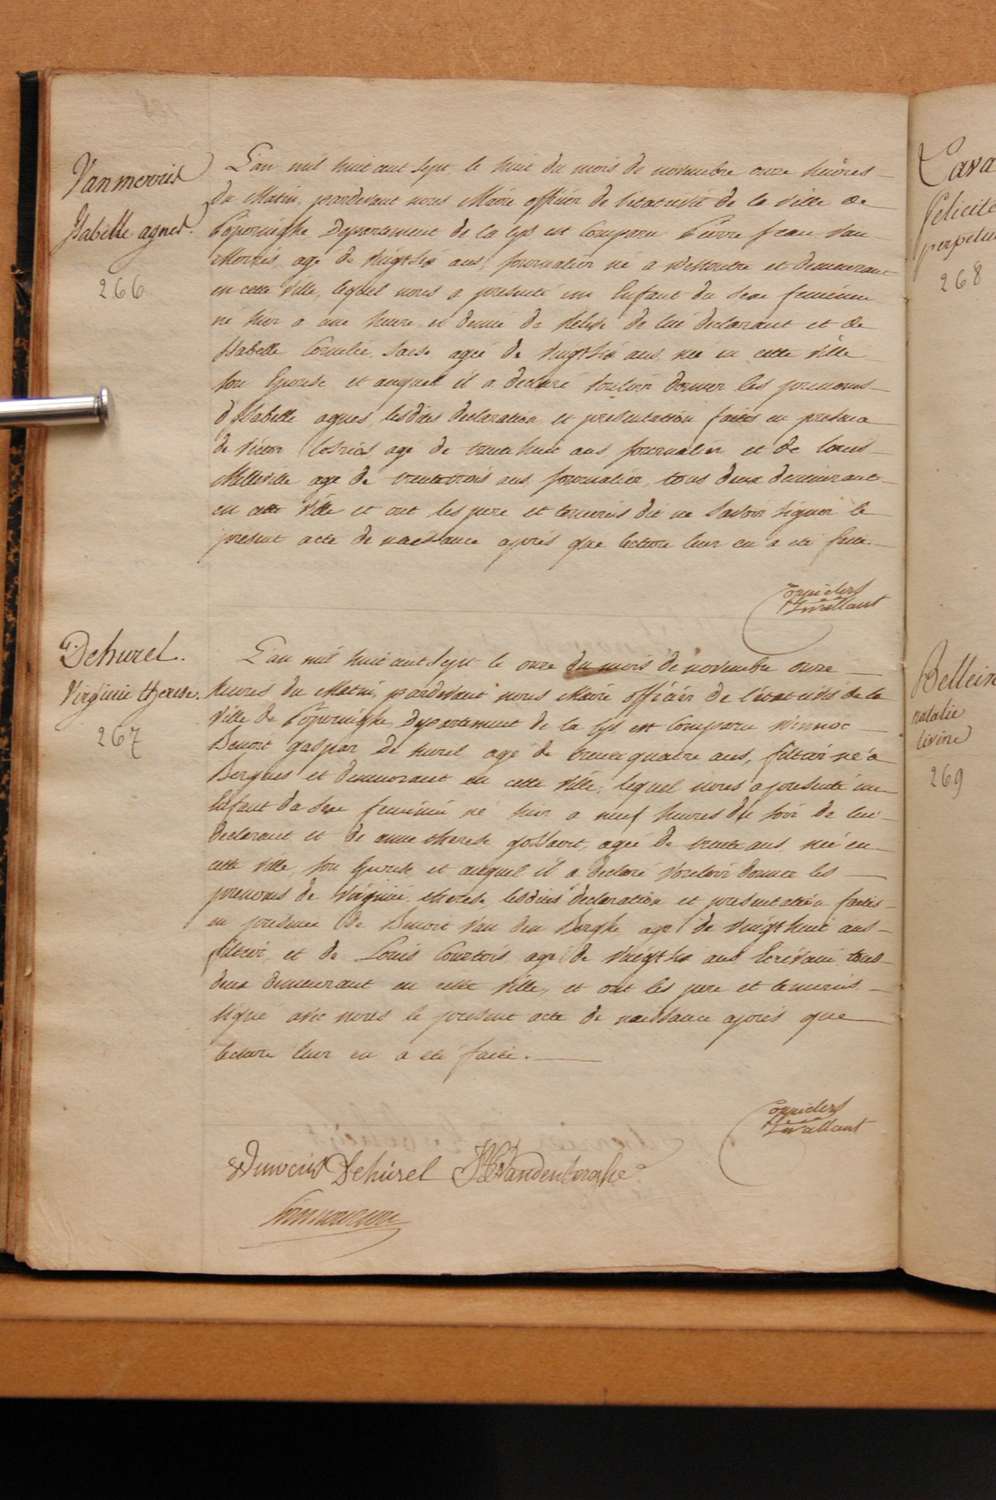 Vanmerris
Isabelle agnes.
266
L'an mil huit cent sept le huit du mois de novembre onze heures
du Matin, pardevant nous Maire officier de l'etat civil de la ville de
Poperinghe Departement de la Lys est Comparu Pierre Jean Van
Merris, agé de vingtsix ans, journalier né a Westoutre et demeurant
en cette ville, lequel nous a presenté un Enfant du sexe feminin
né hier a une heure et demie de de lui declarant et de
Isabelle Cornelie agée de vingtsix ans née en cette ville
son Epouse et auquel il a declaré vouloir donner les prenoms
d'Isabelle agnes, lesdites declaration et presentation faites en presence
de Victor agé de trente huit ans journalier et de Louis
Milleville agé de trentetrois ans journalier, tous deux demeurant
en cette ville et ont les pere et temoins dit ne savoir signer le
present acte de naissance apres que lecture leur en a eté faite.
Dehurel.
Virginie therese.
267
L'an mil huit cent sept le onze du mois de novembre onze
heures du Matin, pardevant nous Maire officier de l'etat civil de la
ville de Poperinghe, departement de la Lys est Comparu Winnoc
Benoit gaspar De hurel agé de trente quatre ans, né a
Bergues et demeurant en cette ville, lequel nous a presenté un
Enfant du sexe feminin né hier a neuf heures du soir de lui
declarant et de anne therese agée de trente ans née en
cette ville, son Epouse et auquel il a declaré vouloir donner les
prenoms de Virginie, therese lesdites declaration et presentation faites
en presence de Benoit Van den Berghe agé de vingt huit ans
et de Louis Courtois agé de vingtsix ans Ecrivain, tous
deux demeurant en cette ville, et ont les pere et temoins
signé avec nous le present acte de naissance apres que
lecture leur en a eté faite.
Dehurel Vandenberghe
Cava
Felicité
perpetue
268
Bellein
natalie
livine
269